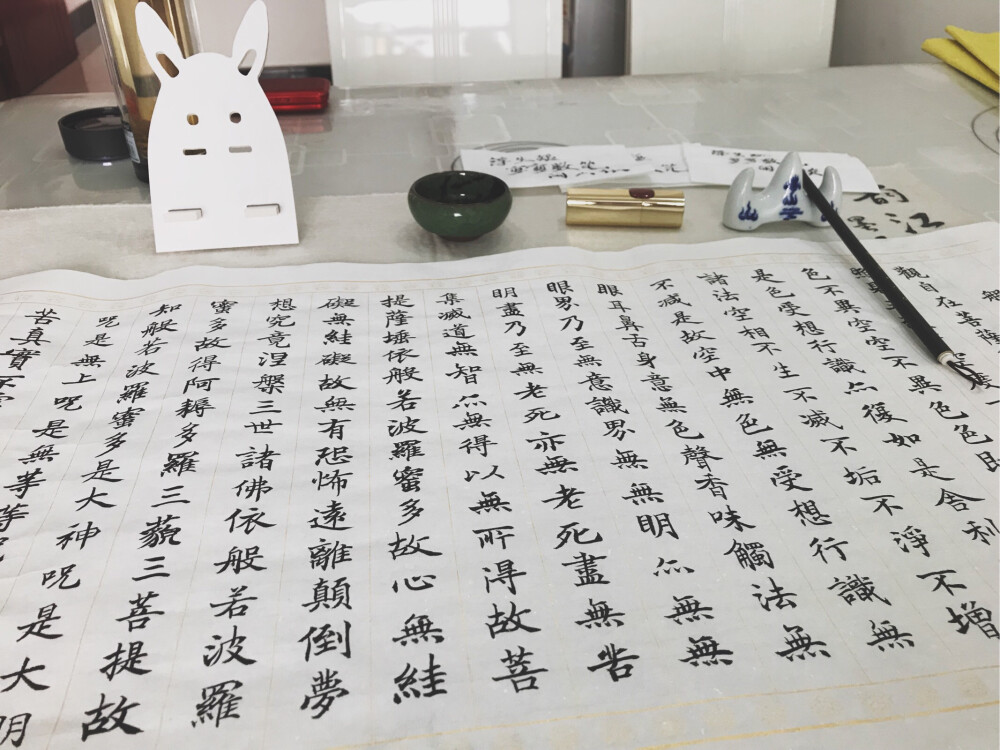 觀自在菩薩
色不異空空不異色色即
是色受想行識亦復如是舍利
諸法空相不生不滅不垢不淨不增
不減是故空中無色無受想行識無
眼耳鼻舌身意無色聲香味觸法無
眼界乃至無意識界無無明亦無無
明盡乃至無老死亦無老死盡無苦
集滅道無智亦無得以無所得故菩
提薩埵依般若波羅蜜多故心無絓
礙無絓礙故無有恐怖遠離顛倒夢
想究竟涅槃三世諸佛依般若波羅
蜜多故得阿耨多羅三藐三菩提故
知般若波羅蜜多是大神咒是大明
咒是無上咒是無等等
苦真實不